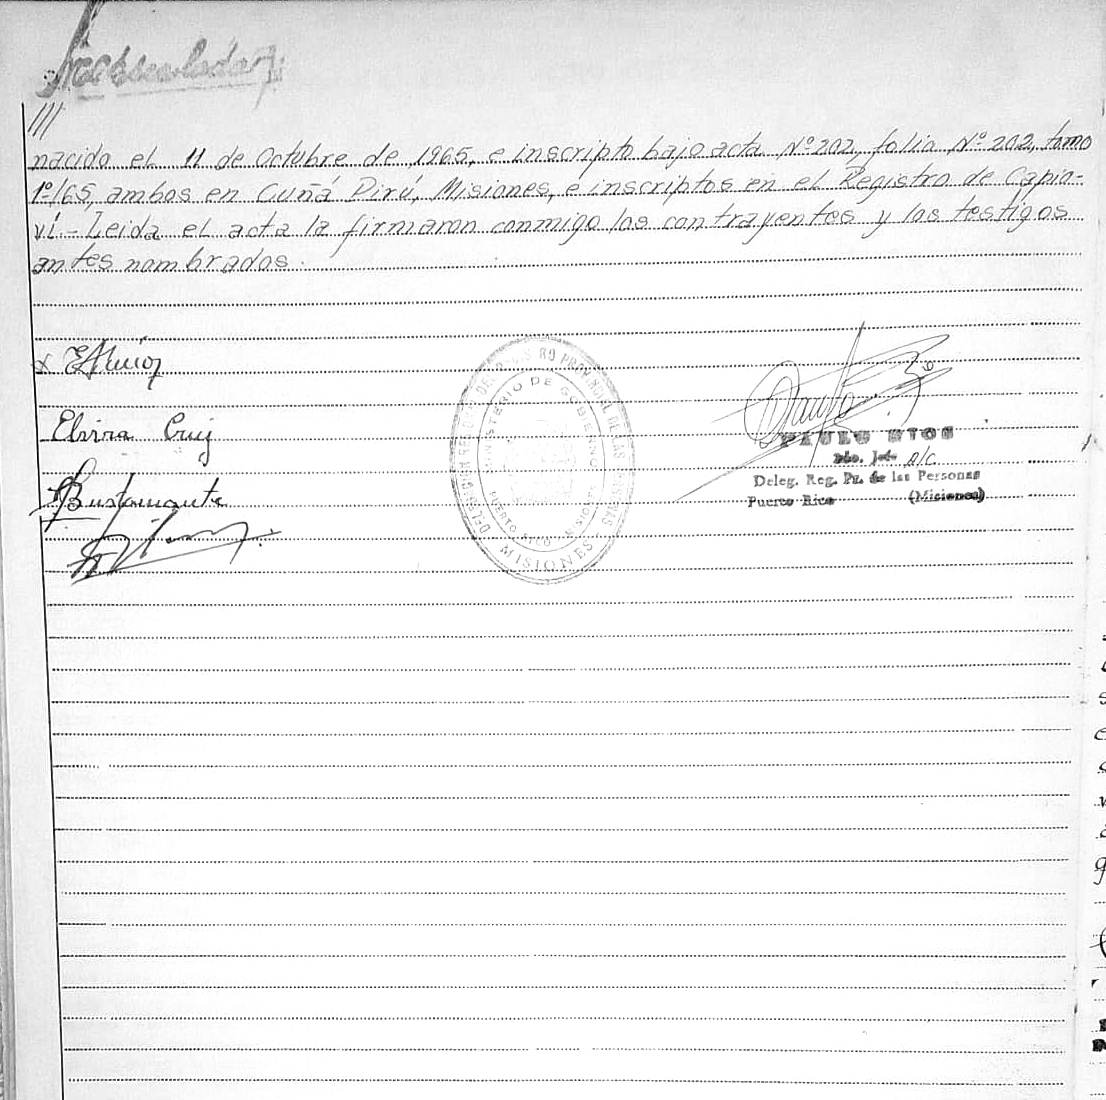 ///
nacido el 11 de Octubre de 1965, e inscripto bajo acta Nº 202, folio Nº 202, tomo
1º/65, ambos en Cuñá Pirú, Misiones, e inscriptos en el Registro de Capio-
ví.- Leida el acta la firmaron conmigo los contrayentes y los testigos
antes nombrados.
Elvira Cruz
Bustamante
MINISTERIO DE GOBIERNO
PUERTO RICO - MISIONES
MISIONES
PAULO RIOS
Jefe A/C
Deleg. Reg. Pr. de las Personas
Puerto Rico (Misiones)